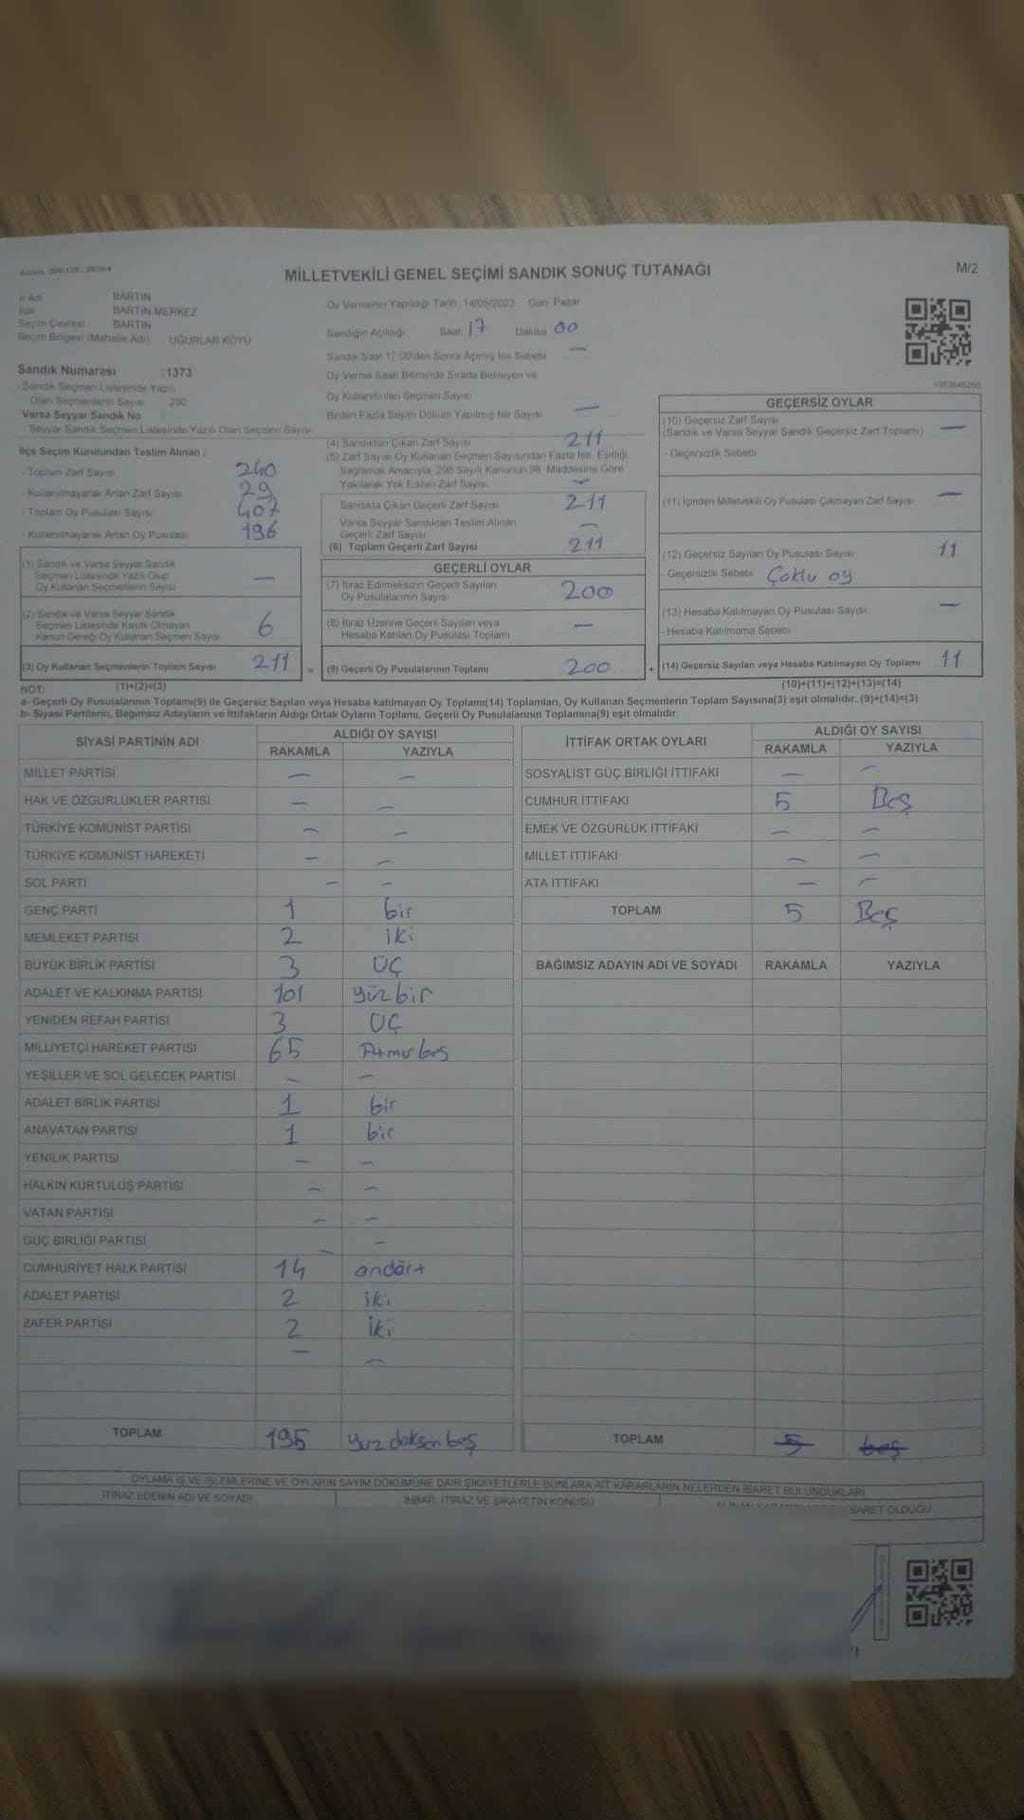 MİLLETVEKİLİ GENEL SEÇİMİ SANDIK SONUÇ TUTANAĞI
M/2
İl Adı BARTIN
BARTIN MERKEZ
Seçim Çevresi BARTIN
Seçim Bölgesi (Mahalle Adı) UĞURLAR KÖYÜ
Sandık Numarası :1373
- Sandık Seçmen Listesinde Yazılı
Olan Seçmenlerin Sayısı
Varsa Seyyar Sandık No
Seyyar Sandık Seçmen Listesinde Yazılı Olan Seçmen Sayısı
İlçe Seçim Kurulundan Teslim Alınan :
- Toplam Zarf Sayısı 240
- Kullanılmayarak Artan Zarf Sayısı 29
- Toplam Oy Pusulası Sayısı 407
- Kullanılmayarak Artan Oy Pusulası 196
(1) Sandık ve Varsa Seyyar Sandık
Seçmen Listesinde Yazılı Olup
Oy Kullanan Seçmenlerin Sayısı —
(2) Sandık ve Varsa Seyyar Sandık
Seçmen Listesinde Kaydı Olmayan
Kanun Gereği Oy Kullanan Seçmen Sayısı 6
(3) Oy Kullanan Seçmenlerin Toplam Sayısı 211
Oy Vermenin Yapıldığı Tarih : 14/05/2023 Gün Pazar
Sandığın Açıldığı Saat 17 Dakika 00
Sandık Saat 17.00'den Sonra Açılmış İse Sebebi —
Oy Verme Saati Bitiminde Sırada Bekleyen ve
Oy Kullandırılan Seçmen Sayısı
Birden Fazla Sayım Döküm Yapılmış İse Sayısı —
(4) Sandıktan Çıkan Zarf Sayısı 211
(5) Zarf Sayısı Oy Kullanan Seçmen Sayısından Fazla İse, Eşitliği
Sağlamak Amacıyla, 298 Sayılı Kanunun 98. Maddesine Göre
Yakılarak Yok Edilen Zarf Sayısı —
Sandıkta Çıkan Geçerli Zarf Sayısı 211
Varsa Seyyar Sandıktan Teslim Alınan
Geçerli Zarf Sayısı —
(6) Toplam Geçerli Zarf Sayısı 211
GEÇERLİ OYLAR
(7) İtiraz Edilmeksizin Geçerli Sayılan
Oy Pusulalarının Sayısı 200
(8) İtiraz Üzerine Geçerli Sayılan veya
Hesaba Katılan Oy Pusulası Toplamı —
= (9) Geçerli Oy Pusulalarının Toplamı 200
GEÇERSİZ OYLAR
(10) Geçersiz Zarf Sayısı
(Sandık ve Varsa Seyyar Sandık Geçersiz Zarf Toplamı) —
- Geçersizlik Sebebi
(11) İçinden Milletvekili Oy Pusulası Çıkmayan Zarf Sayısı —
(12) Geçersiz Sayılan Oy Pusulası Sayısı 11
- Geçersizlik Sebebi Çoklu oy
(13) Hesaba Katılmayan Oy Pusulası Sayısı —
- Hesaba Katılmama Sebebi
+ (14) Geçersiz Sayılan veya Hesaba Katılmayan Oy Toplamı 11
NOT: (1)+(2)=(3)
(10)+(11)+(12)+(13)=(14)
a- Geçerli Oy Pusulalarının Toplamı(9) ile Geçersiz Sayılan veya Hesaba katılmayan Oy Toplamı(14) Toplamları, Oy Kullanan Seçmenlerin Toplam Sayısına(3) eşit olmalıdır. (9)+(14)=(3)
b- Siyasi Partilerin, Bağımsız Adayların ve İttifakların Aldığı Ortak Oyların Toplamı, Geçerli Oy Pusulalarının Toplamına(9) eşit olmalıdır.
SİYASİ PARTİNİN ADI ALDIĞI OY SAYISI
RAKAMLA YAZIYLA
MİLLET PARTİSİ — —
HAK VE ÖZGÜRLÜKLER PARTİSİ — —
TÜRKİYE KOMÜNİST PARTİSİ — —
TÜRKİYE KOMÜNİST HAREKETİ — —
SOL PARTİ — —
GENÇ PARTİ 1 bir
MEMLEKET PARTİSİ 2 iki
BÜYÜK BİRLİK PARTİSİ 3 ÜÇ
ADALET VE KALKINMA PARTİSİ 101 yüzbir
YENİDEN REFAH PARTİSİ 3 ÜÇ
MİLLİYETÇİ HAREKET PARTİSİ 65 Atmışbeş
YEŞİLLER VE SOL GELECEK PARTİSİ — —
ADALET BİRLİK PARTİSİ 1 bir
ANAVATAN PARTİSİ 1 bir
YENİLİK PARTİSİ — —
HALKIN KURTULUŞ PARTİSİ — —
VATAN PARTİSİ — —
GÜÇ BİRLİĞİ PARTİSİ — —
CUMHURİYET HALK PARTİSİ 14 ondört
ADALET PARTİSİ 2 iki
ZAFER PARTİSİ 2 iki
— —
TOPLAM 195 yüz doksan beş
İTTİFAK ORTAK OYLARI ALDIĞI OY SAYISI
RAKAMLA YAZIYLA
SOSYALİST GÜÇ BİRLİĞİ İTTİFAKI — —
CUMHUR İTTİFAKI 5 Beş
EMEK VE ÖZGÜRLÜK İTTİFAKI — —
MİLLET İTTİFAKI — —
ATA İTTİFAKI — —
TOPLAM 5 Beş
BAĞIMSIZ ADAYIN ADI VE SOYADI RAKAMLA YAZIYLA
TOPLAM 5 beş
OYLAMA İŞ VE İŞLEMLERİNE VE OYLARIN SAYIM DÖKÜMÜNE DAİR ŞİKAYETLERLE BUNLARA AİT KARARLARIN NELERDEN İBARET BULUNDUKLARI
İTİRAZ EDENİN ADI VE SOYADI İHBAR, İTİRAZ VE ŞİKAYETİN KONUSU